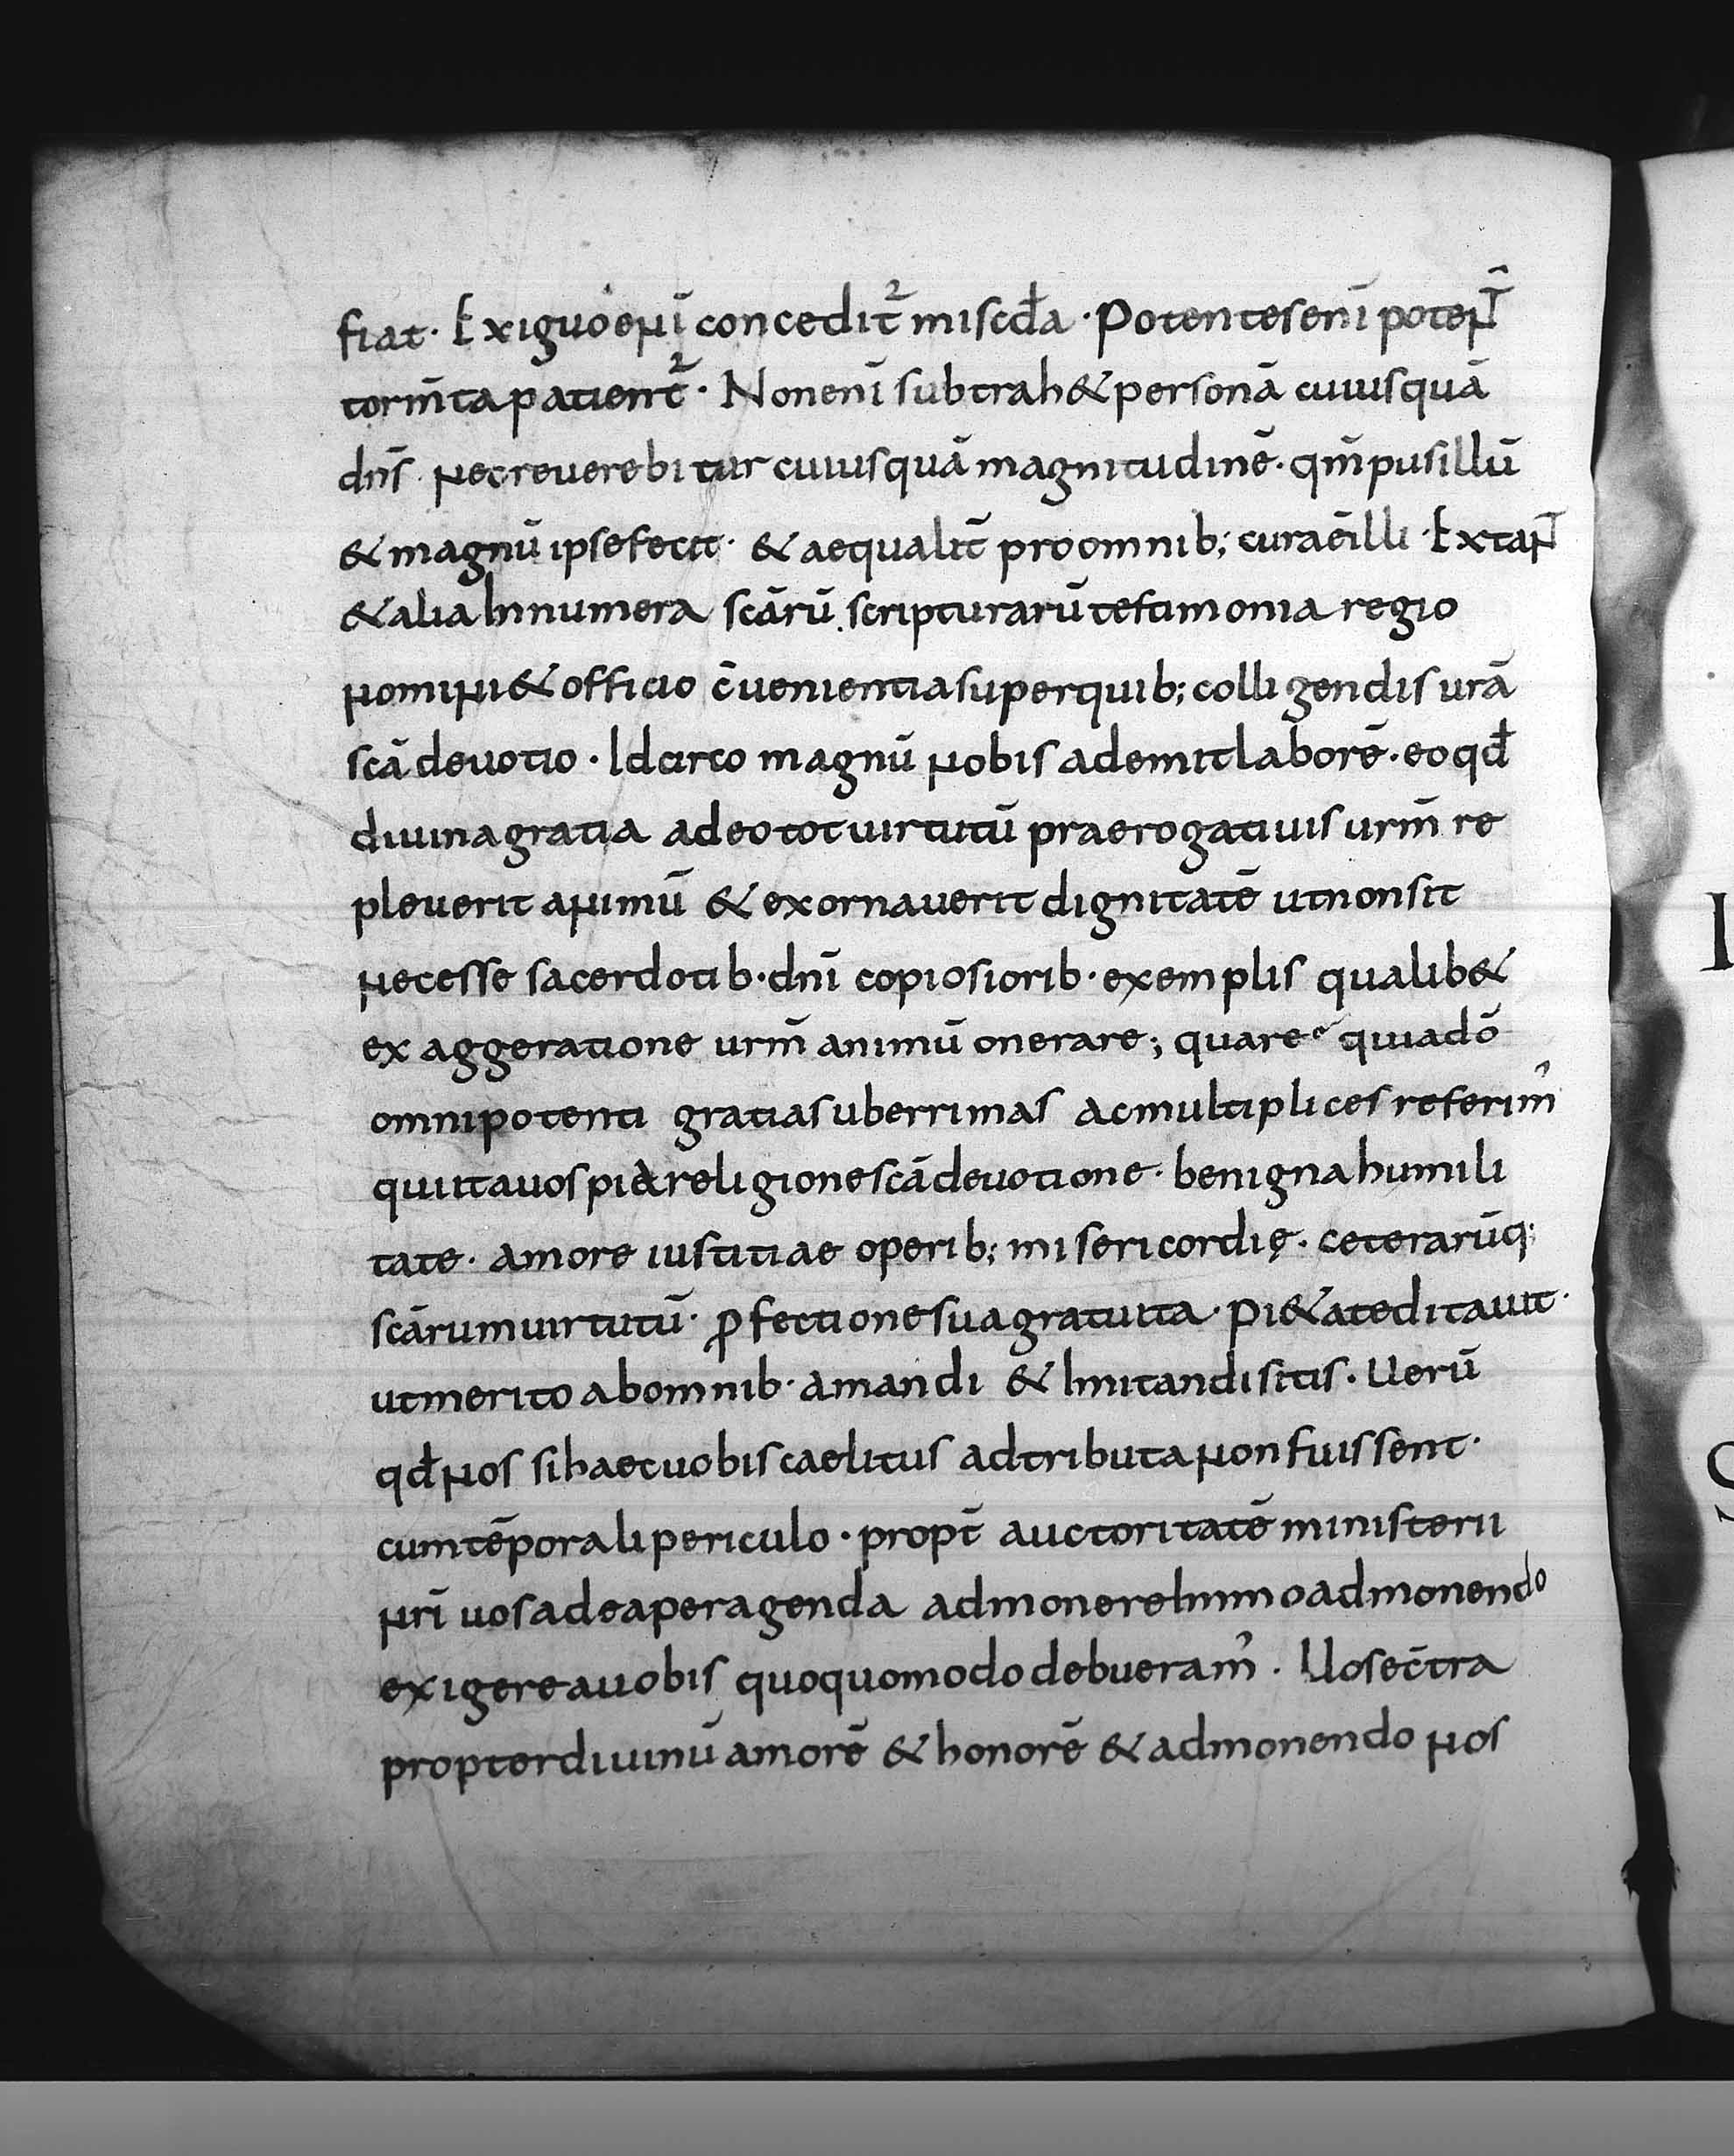 fiat· Exiguo enī concedit̄² miscd̄a · Potentes enī potent̄
torm̄ta patient̄²· Non enī subtrah& personā cuiusquā
dn̄s nec reuerebitur cuiusquā magnitudinē· qm̄ pusillū
& magnū ipse fecit· & aequalit̄ pro omnib; cura ē illi · Extant̄
& alia Innumera scārū scripturarū testimonia regio
nomini & officio c̄uenientia super quib; colligendis urā
scā deuotio · Idcirco magnū nobis ademit laborē· eo qd̄
diuina gratia adeo tot uirtutū praerogatiuis urm̄ re
pleuerit animū & exornauerit dignitatē ut non sit
necesse sacerdotib· dnī copiosiorib· exemplis qualib&
exaggeratione urm̄ animū onerare; quare quia dō
omnipotenti gratias uberrimas ac multiplices referim᾿
qui ita uos pia religione scā deuotione· benigna humili
tate· amore iustitiae operib; misericordię· ceterarūq;
scārum uirtutū· ꝓfectione sua gratuita· pi&ate ditauit·
ut merito ab omnib· amandi & Imitandi sitis· Uerū
qd̄ nos si haec uobis caelitus adtributa non fuissent·
cum tēporali periculo · propt̄ auctoritatē ministerii
nrī uos ad ea peragenda admonere Immo admonendo
exigere a uobis quoquomodo debueram᾿ · Uos ec̄tra
propter diuinū amorē & honorē & admonendo nos